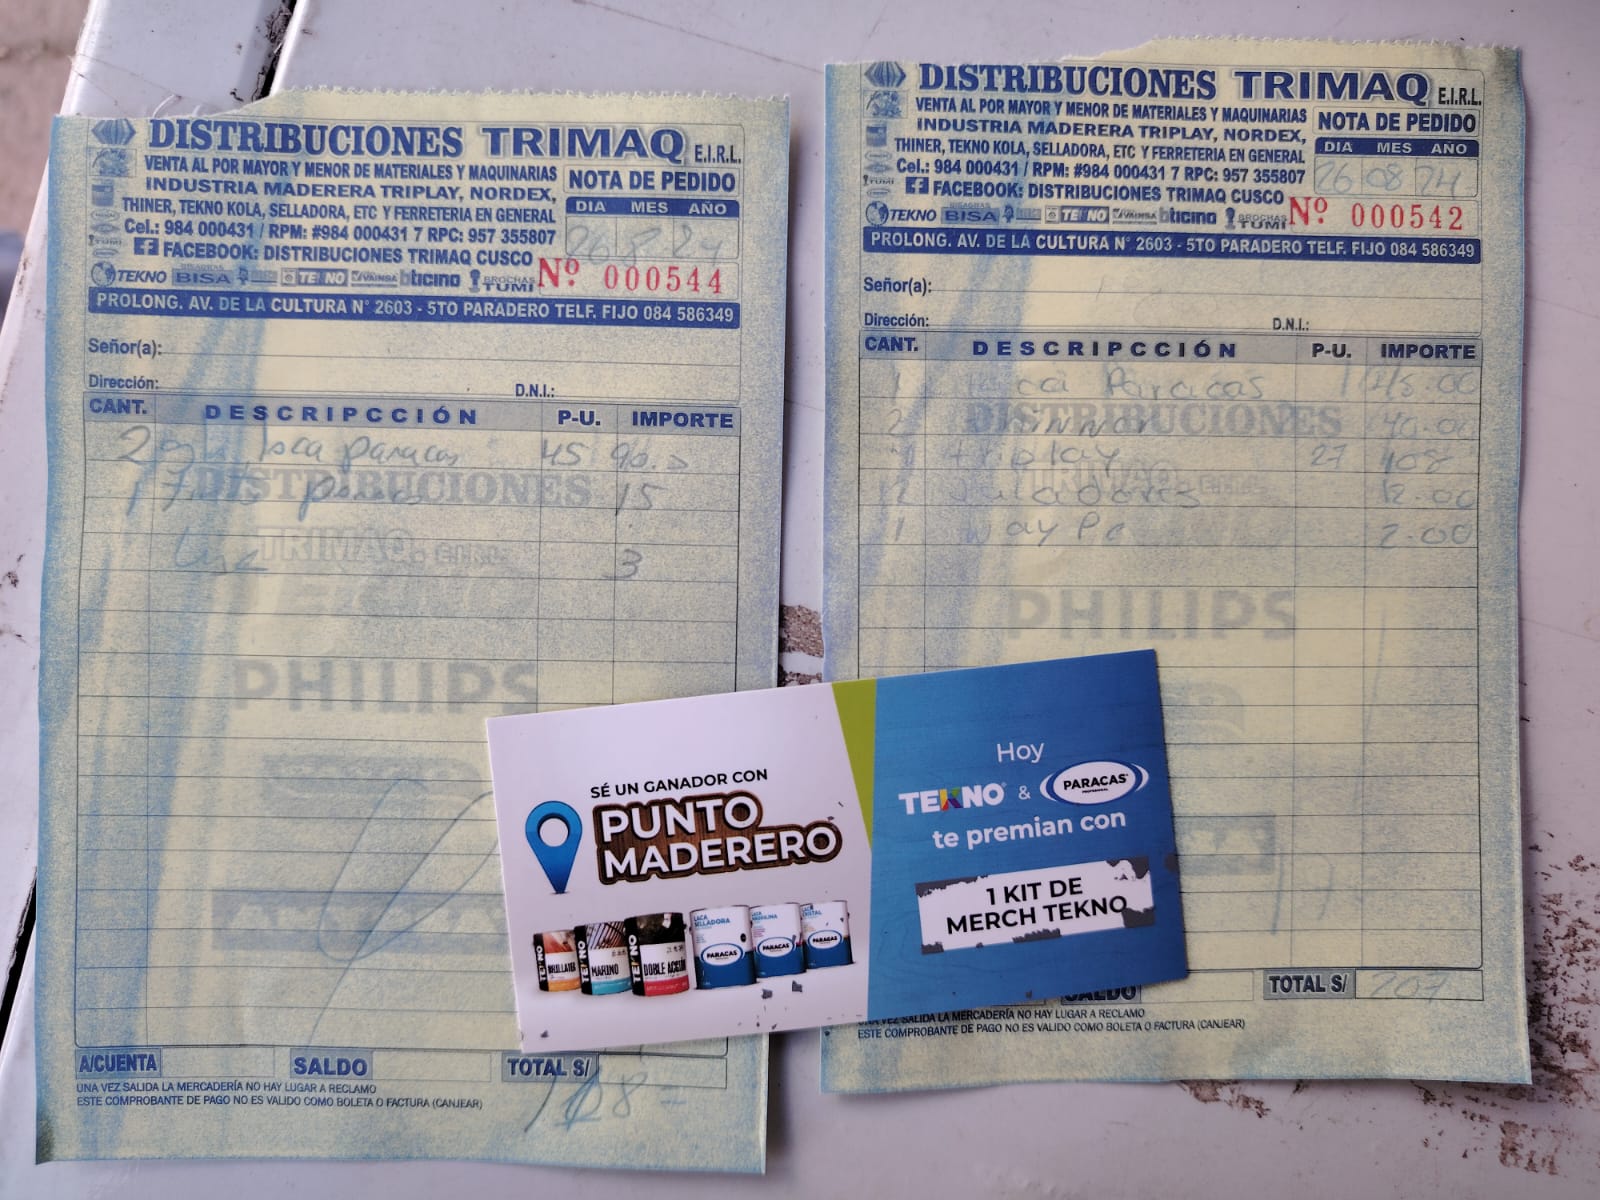 DISTRIBUCIONES TRIMAQ E.I.R.L.
VENTA AL POR MAYOR Y MENOR DE MATERIALES Y MAQUINARIAS
INDUSTRIA MADERERA TRIPLAY, NORDEX,
THINER, TEKNO KOLA, SELLADORA, ETC Y FERRETERIA EN GENERAL
Cel.: 984 000431 / RPM: #984 000431 7 RPC: 957 355807
FACEBOOK: DISTRIBUCIONES TRIMAQ CUSCO
NOTA DE PEDIDO
DIA MES AÑO
26 8 24
TEKNO BISAGRAS BISA TEKNO VAINSA bticino BROCHAS TUMI
Nº 000544
PROLONG. AV. DE LA CULTURA N° 2603 - 5TO PARADERO TELF. FIJO 084 586349
Señor(a):
Dirección: D.N.I.:
CANT. DESCRIPCCIÓN P-U. IMPORTE
2 laca paracas 45 90.
1 15
3
DISTRIBUCIONES
TRIMAQ E.I.R.L.
PHILIPS
A/CUENTA SALDO TOTAL S/ 108
UNA VEZ SALIDA LA MERCADERÍA NO HAY LUGAR A RECLAMO
ESTE COMPROBANTE DE PAGO NO ES VALIDO COMO BOLETA O FACTURA (CANJEAR)
DISTRIBUCIONES TRIMAQ E.I.R.L.
VENTA AL POR MAYOR Y MENOR DE MATERIALES Y MAQUINARIAS
INDUSTRIA MADERERA TRIPLAY, NORDEX,
THINER, TEKNO KOLA, SELLADORA, ETC Y FERRETERIA EN GENERAL
Cel.: 984 000431 / RPM: #984 000431 7 RPC: 957 355807
FACEBOOK: DISTRIBUCIONES TRIMAQ CUSCO
NOTA DE PEDIDO
DIA MES AÑO
26 08 24
TUMI TEKNO BISAGRAS BISA TEKNO VAINSA bticino BROCHAS TUMI
Nº 000542
PROLONG. AV. DE LA CULTURA N° 2603 - 5TO PARADERO TELF. FIJO 084 586349
Señor(a):
Dirección: D.N.I.:
CANT. DESCRIPCCIÓN P-U. IMPORTE
1 Laca Paracas 45.00
2 40.00
triplay 27 108
12 Jaladores 12.00
1 2.00
DISTRIBUCIONES
TRIMAQ E.I.R.L.
PHILIPS
SALDO TOTAL S/ 207
UNA VEZ SALIDA LA MERCADERÍA NO HAY LUGAR A RECLAMO
ESTE COMPROBANTE DE PAGO NO ES VALIDO COMO BOLETA O FACTURA (CANJEAR)
SÉ UN GANADOR CON
PUNTO
MADERERO
TEKNO BRILLATEK TEKNO MARINO TEKNO DOBLE ACCIÓN LACA SELLADORA PARACAS PARACAS LACA CRISTAL PARACAS
Hoy
TEKNO & PARACAS PROFESIONAL
te premian con
1 KIT DE
MERCH TEKNO